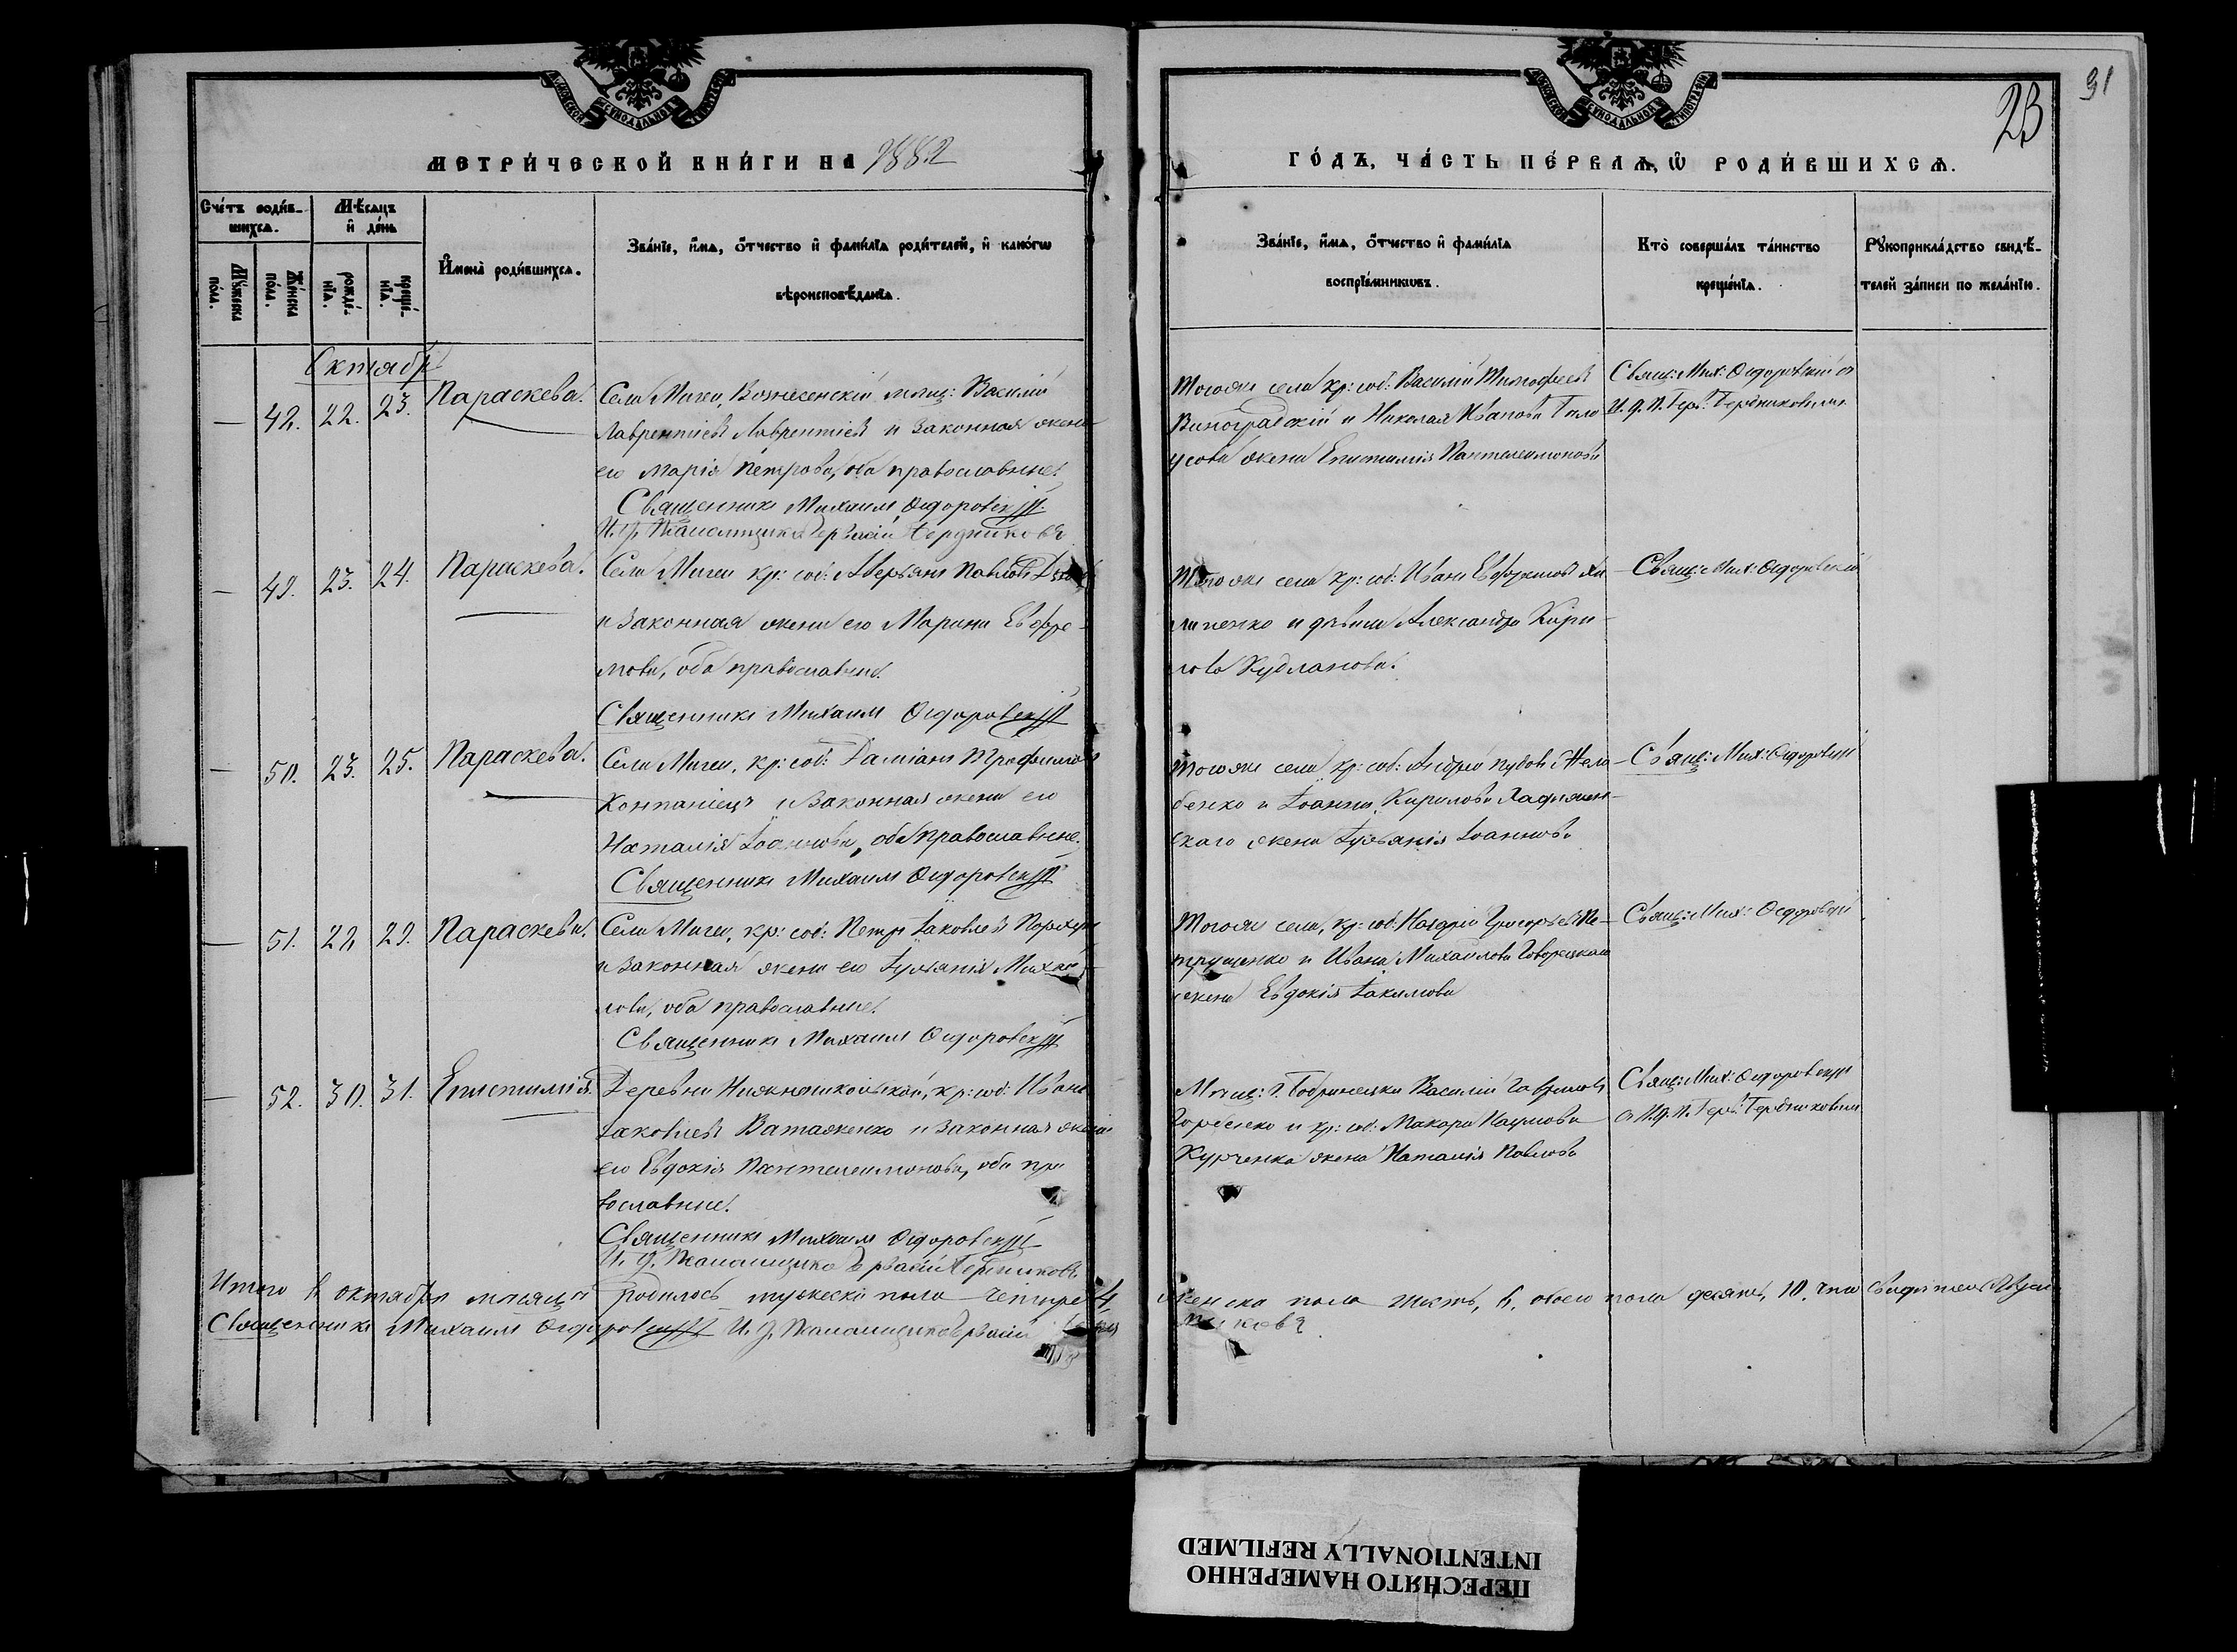 31
23
МЕТРИ́ЧЕСКОЙ КНИ́ГИ НА 1882
ГО́ДЪ, ЧА́СТЬ ПЕ́РВАѦ, Ѡ҆ РОДИ́ВШИХСѦ.
Сче́тъ роди́в-
шихсѧ.
Мѣ́сѧцъ
и҆ де́нь
Мꙋ́жеска
по́ла.
Же́нска
по́ла.
рожде́-
нїѧ.
креще́-
нїѧ.
И҆мена̀ роди́вшихсѧ.
Зва́нїе, и҆́мѧ, ѻ҆́тчество и҆ фами́лїѧ роди́телей, и҆ како́гѡ
вѣроисповѣ́данїѧ.
Зва́нїе, и҆́мѧ, ѻ҆́тчество и҆ фами́лїѧ
воспрїе́мникѡвъ.
Кто̀ соверша́лъ та́инство
креще́нїѧ.
Рꙋкоприкла́дство свидѣ́-
телей за́писи по жела́нїю.
Октябрь
— 48. 22. 23. Параскева. Села Мигеи, Вознесенскій мѣщ: Василій
Лаврентіевъ Лаврентіевъ и законная жена
его Марія Петрова, оба православные.
Священникъ Михаилъ Ѳедоровскій
И. д. Псаломщика Гервасій Бердниковъ
Тогоже села кр: соб: Василій Тимофеевъ
Виноградскій и Николая Иванова
жена Епистимія Пантелеимонова
Свящ: Мих: Ѳедоровскій съ
И. д. П. Герв: Бердниковымъ
— 49. 23. 24. Параскева. Села Мигеи кр: соб: Аверьянъ Павловъ
и законная жена его Марина Евфре-
мова, оба православные.
Священникъ Михаилъ Ѳедоровскій
Тогоже села кр: соб: Иванъ
и дѣвица Александра Кири-
лова Кудланова.
Свящ: Мих: Ѳедоровскій
— 50. 23. 25. Параскева. Села Мигеи, кр: соб: Даміанъ Трифиловъ
Компаніецъ и законная жена его
Наталія Іоаннова, оба православные.
Священникъ Михаилъ Ѳедоровскій
Тогоже села кр: соб: Андрей
и Іоанна Кирилова
жена Іуліанія Іоаннова
Свящ: Мих: Ѳедоровскій
— 51. 28. 29. Параскева. Села Мигеи, кр: соб: Петръ Іаковлевъ
и законная жена его Іуліанія Михай-
лова, оба православные.
Священникъ Михаилъ Ѳедоровскій
Тогоже села, кр: соб: Назарій Григорьевъ Пе-
трущенко и Ивана Михайлова Говорецкаго
жена Евдокія Іакимова
Свящ: Мих: Ѳедоровскій
— 52. 30. 31. Епистимія. Деревни кр: соб: Иванъ
Іаковлевъ Ватаженко и законная жена
его Евдокія Пантелеимонова, оба пра
вославные.
Священникъ Михаилъ Ѳедоровскій
И. д. Псаломщика Гервасій Бердниковъ
Мѣщ: г. Бобринецка Василій Гавриловъ
Горбенко и кр: соб: Макара Наумова
Курченка жена Наталія Павлова
Свящ: Мих: Ѳедоровскій
съ И. д. П. Герв: Бердниковымъ
Итого въ октябрѣ мѣсяцѣ родилось мужеска пола четыре 4,
женска пола шесть, 6, обоего пола десять, 10, что
Священникъ Михаилъ Ѳедоровскій И. д. Псаломщика Гервасій Бердниковъ
ПЕРЕСНЯТО НАМЕРЕННО
INTENTIONALLY REFILMED